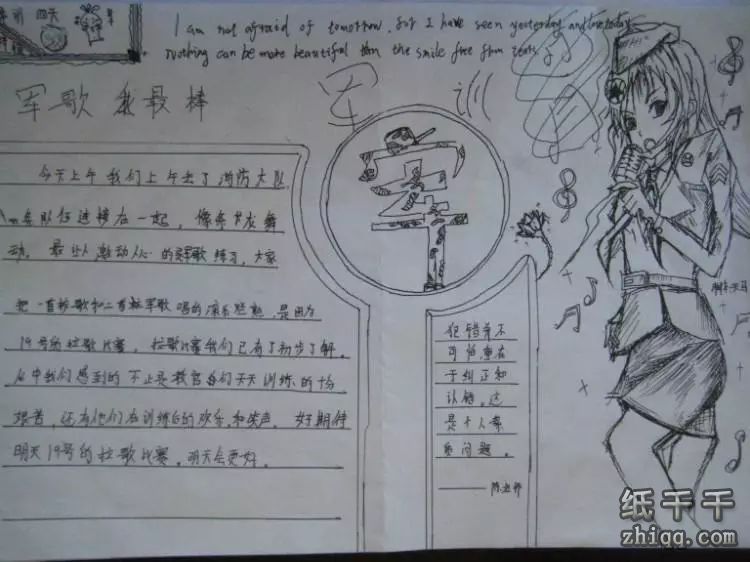 四天
I am not afraid of tomorrow, for I have seen yesterday and love today
Nothing can be more beautiful than the smile free from tears.
军歌 我最棒
军
军
今天上午我们上午去了消防大队
队伍连接在一起，像条长龙舞
动。最让人激动人心的是军歌练习，大家
把一首校歌和二首军歌唱的滚瓜烂熟，是因为
19号的拉歌比赛，拉歌比赛我们已有了初步了解。
在中我们感到的不止是教官自们天天训练的十分
艰苦，还有他们在训练后的欢乐和笑声。好期待
明天19号的拉歌比赛，明天会更好。
犯错并不
可怕，重在
于纠正和
认错，这
是个人素
质问题。
—— 陈老师
纸千千
zhiqq.com